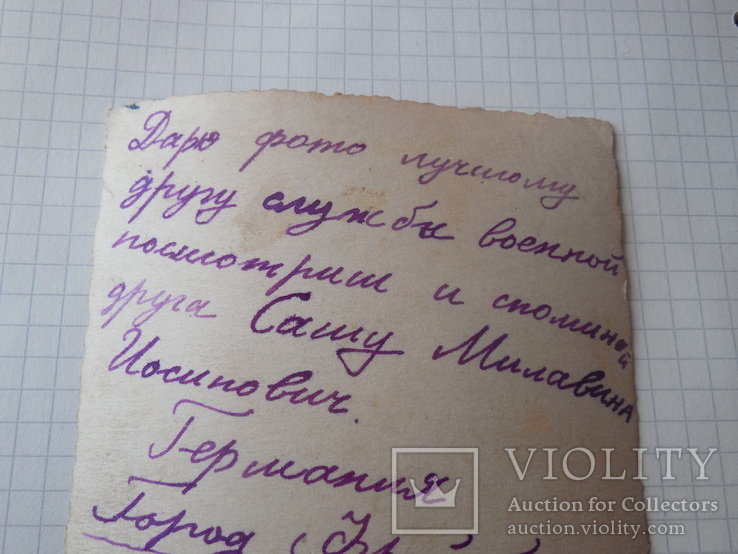 Дарю фото лучшому
другу службы военной
посмотриш и споминай
друга Сашу Милавина
Иосипович.
Германия
Город
VIOLITY
Auction for Collectors
auction.violity.com